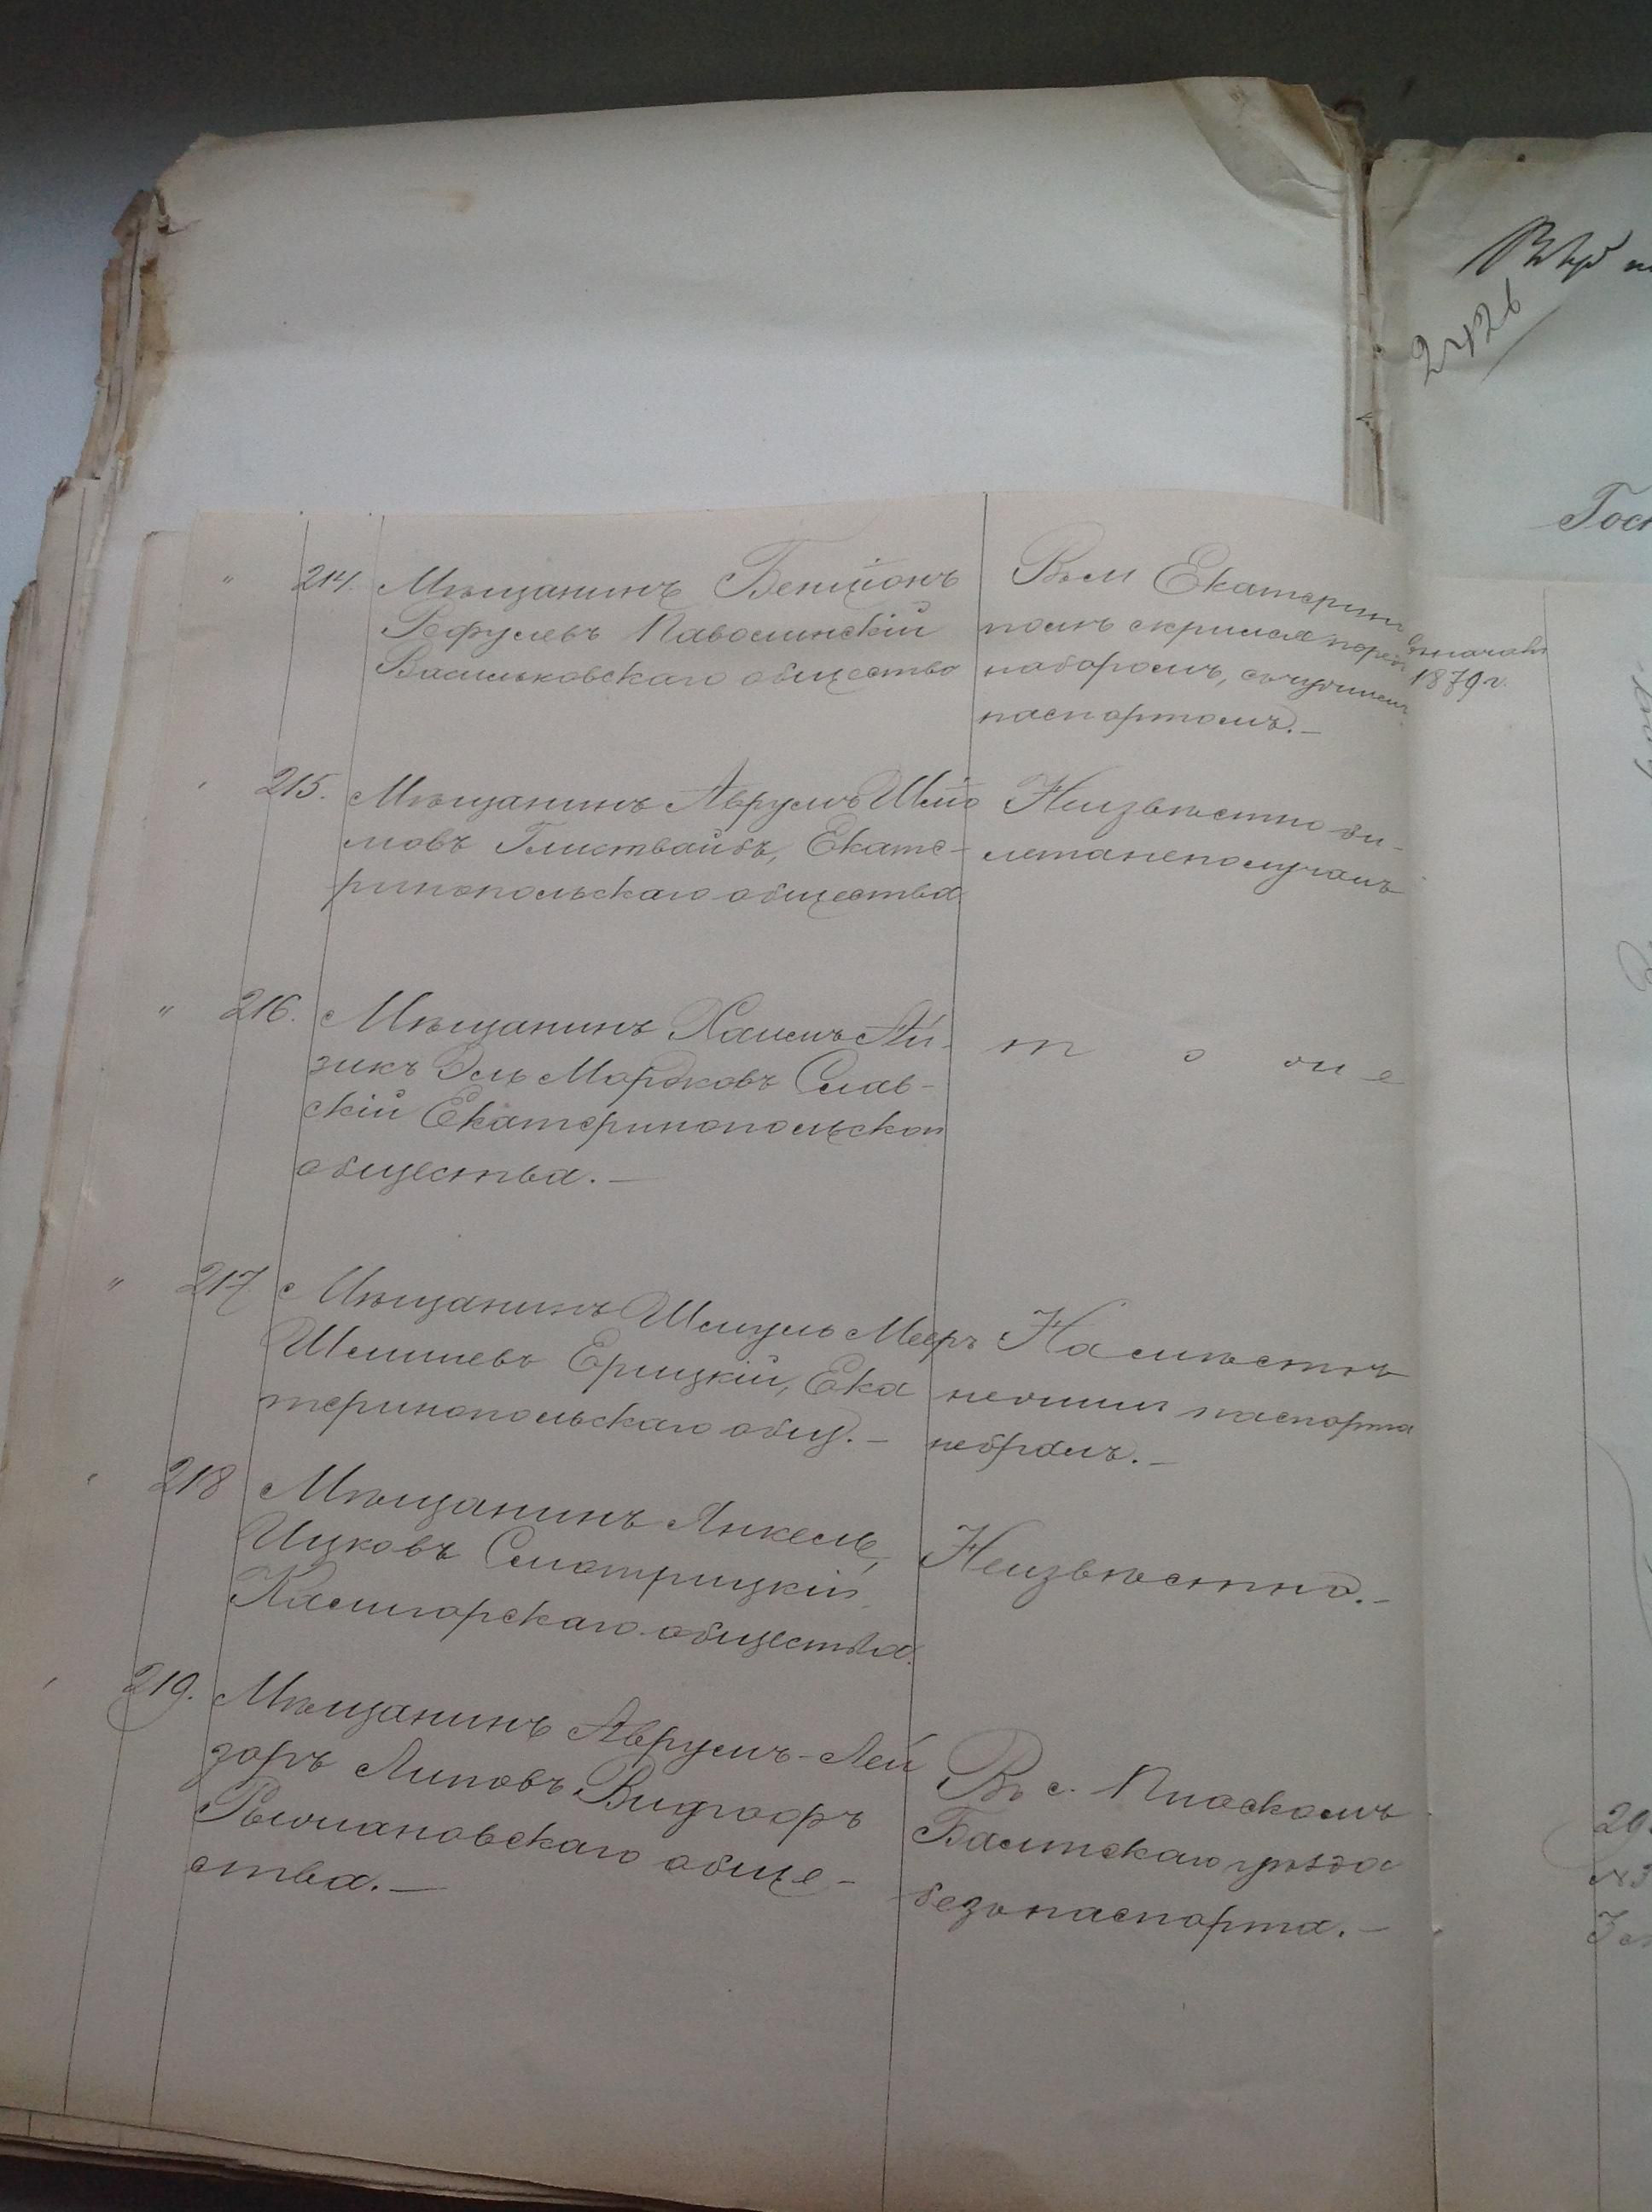 " 214. Мѣщанинъ Бенціонъ
Рефулевъ Паволинскій
Васильковскаго общество
Въ м Екатерин
полѣ скрился передъ
наборомъ, съ годичнымъ
паспортомъ. —
въ началѣ
1879 г.
215. Мѣщанинъ Аврумъ Шмо
мовъ Глиствайбъ, Екате-
ринопольскаго общества
Неизвѣстно би-
лета неполучалъ
" 216. Мѣщанинъ Хаимъ Ай-
зикъ Эль Мордковъ Слав-
скій Екатеринопольскаго
общества. —
т о же
" 217 Мѣщанинъ Шмуль Мееръ
Шлиіиевъ Ерицкій, Ека
теринопольскаго общ. —
На мѣстѣ
нежилъ паспорта
небралъ. —
218 Мѣщанинъ Янкель,
Ицковъ Смотрицкій
общества
Неизвѣстно. —
219. Мѣщанинъ Аврумъ-Лей
зоръ Липовъ
Рыжановскаго обще-
ства. —
Въ с.
Балтскаго уѣзда
безъ паспорта. —
2426
Госп